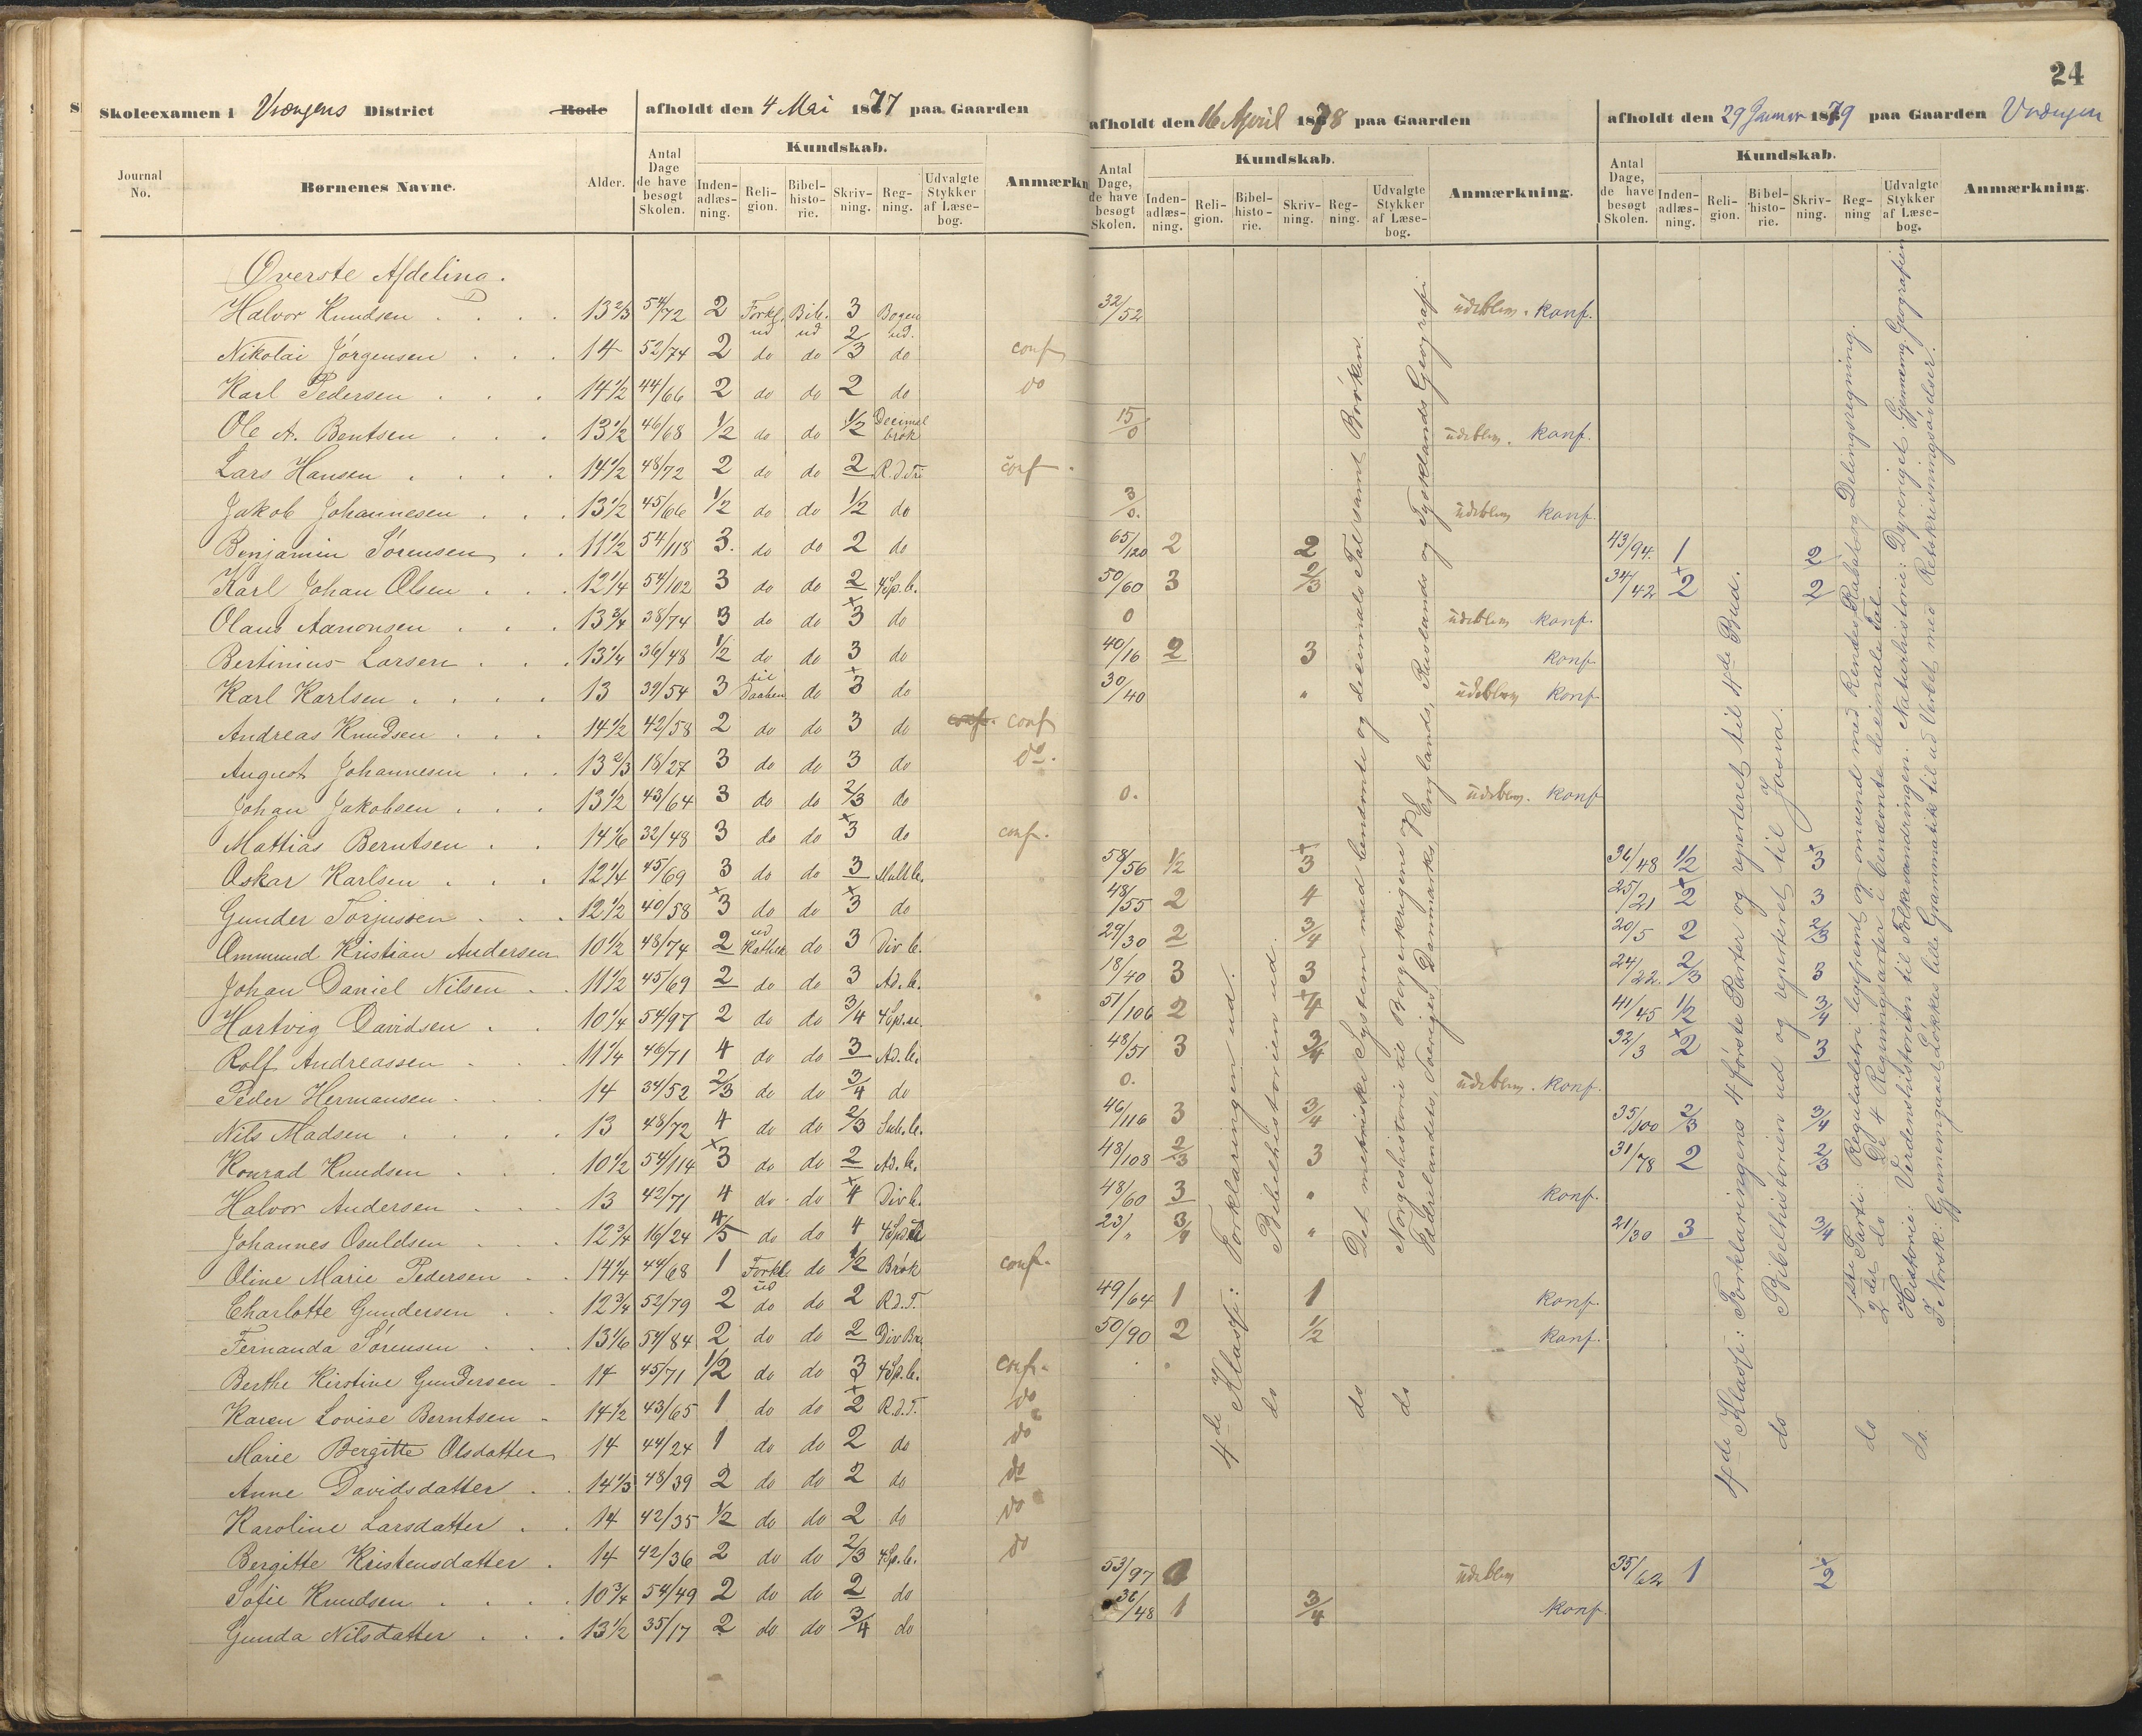 24
Skoleexamen i Vrængens District Rode afholdt den 4 Mai 1877 paa Gaarden
afholdt den 16 April 1878 paa Gaarden
afholdt den 29 Januar 1879 paa Gaarden Vrængen
Journal No. Børnenes Navne. Alder. Antal Dage de have besøgt Skolen. Kundskab. Inden-adlæs-ning. Reli-gion. Bibel-histo-rie. Skriv-ning. Reg-ning. Udvalgte Stykker af Læse-bog. Anmærkn
Antal Dage, de have besøgt Skolen. Kundskab. Inden-adlæs-ning. Reli-gion. Bibel-histo-rie. Skriv-ning. Reg-ning. Udvalgte Stykker af Læse-bog. Anmærkning.
Antal Dage, de have besøgt Skolen. Kundskab. Inden-adlæs-ning. Reli-gion. Bibel-histo-rie. Skriv-ning. Reg-ning Udvalgte Stykker af Læse-bog. Anmærkning.
Øverste Afdeling.
Halvor Knudsen 13 2/3 54/72 2 Forkl. ud Bib. ud 3 Bogen ud. 32/52 udeblev. konf.
Nikolai Jørgensen 14 52/74 2 do do 2/3 do conf
Karl Pedersen 14 1/2 44/66 2 do do 2 do do
Ole A. Bentsen 13 1/2 46/68 1/2 do do 1/2 Decimal brøk 15/0 udeblev. konf.
Lars Hansen 14 1/2 48/72 2 do do 2 R.d.Tri conf
Jakob Johannesen 13 1/2 45/66 1/2 do do 1/2 do 3/0. udeblev konf.
Benjamin Sørensen 11 1/2 54/118 3. do do 2 do 65/120 2 2 43/94. 1 2
Karl Johan Olsen 12 1/4 54/102 3 do do 2 4 Sp. b. 50/60 3 2/3 34/42 2 2
Olaus Aanonsen 13 3/4 38/74 3 do do 3 do 0 udeblev konf.
Bertinius Larsen 13 1/4 36/48 1/2 do do 3 do 40/16 2 3 konf
Karl Karlsen 13 39/54 3 til Daaben do 3 do 30/40 " udeblev konf.
Andreas Knudsen 14 1/2 42/58 2 do do 3 do conf. conf
August Johannesen 13 2/3 18/27 3 do do 3 do do.
Johan Jakobsen 13 1/2 43/64 3 do do 2/3 do 0. udeblev. konf
Mattias Berntsen 14 1/6 32/48 3 do do 3 do conf.
Oskar Karlsen 12 1/4 45/69 3 do do 3 Mult b. 58/56 1/2 3 36/48 1/2 3
Gunder Torjussen 12 1/2 40/58 3 do do 3 do 48/55 2 4 25/21 2 3
Ommund Kristian Andersen 10 1/2 48/74 2 do 3 Div b. 29/30 2 3/4 20/5 2 2/3
Johan Daniel Nilsen 11 1/2 45/69 2 do do 3 Ad. b. 18/40 3 3 24/22. 2/3 3
Hartvig Davidsen 10 1/4 54/97 2 do do 3/4 4 Sp. u. 51/106 2 4 41/45 1/2 3/4
Rolf Andreassen 11 1/4 46/71 4 do do 3 Ad. b. 48/51 3 3/4 32/3 2 3
Peder Hermansen 14 34/52 2/3 do do 3/4 do 0. udeblev. konf.
Nils Madsen 13 48/72 4 do do 2/3 Sub. b. 46/116 3 3/4 35/100 2/3 3/4
Konrad Knudsen 10 1/2 54/114 3 do do 2 Ad. b. 48/108 2/3 3 31/78 2 2/3
Halvor Andersen 13 42/71 4 do do 4 Div b. 48/60 3 " konf.
Johannes Osuldsen 12 3/4 16/24 4/5 do do 4 23/" 3/4 " 21/30 3 3/4
Oline Marie Pedersen 14 1/4 44/68 1 Forkl ud do 1/2 Brøk conf.
Charlotte Gundersen 12 3/4 52/79 2 do do 2 R.d.T. 49/64 1 1 konf.
Fernanda Sørensen 13 1/6 54/84 2 do do 2 Div Br. 50/90 2 1/2 konf.
Berthe Kirstine Gundersen 14 45/71 1/2 do do 3 4 Sp. b. conf.
Karen Lovise Berntsen 14 1/2 43/65 1 do do 2 R.d.T. do
Marie Bergitte Olsdatter 14 44/24 1 do do 2 do do
Anne Davidsdatter 14 1/3 48/39 2 do do 2 do do
Karoline Larsdatter 14 42/35 1/2 do do 2 do do
Bergitte Kristensdatter 14 42/36 2 do do 2/3 4 Sp. b. do
Sofie Knudsen 10 3/4 54/49 2 do do 2 do 53/97 udeblev 35/62 1 2
Gunda Nilsdatter 13 1/2 35/17 2 do do 3/4 do 36/48 1 3/4 konf.
4de Klasse: Forklaringen ud.
do Bibelhistorien ud.
do Det metriske System med benævnte og decimale Tal samt Brøken.
do Norgeshistorie til Borgerkrigene og
Fædrelandets, Sveriges, Danmarks, Englands, Ruslands og Tysklands Geografi
4de Klasse: Forklaringens 4 første Parter og repeteret til 4de Bud.
do Bibelhistorien ud og repeteret til Josva.
do 1ste Parti: Reguladetri ligefrem og omvend med Rentes Rabat og Delingsregning.
2det do De 4 Regningsarter i benævnte decimale Tal.
do. Historie: Verdenshistorien til Folkevandringen. Naturhistorie: Dyreriget. Gjennemg. Geografien
I Norsk: Gjennemgaaet Løkkes lille Grammatik til ud Verbet med Retskrivningsøvelser.